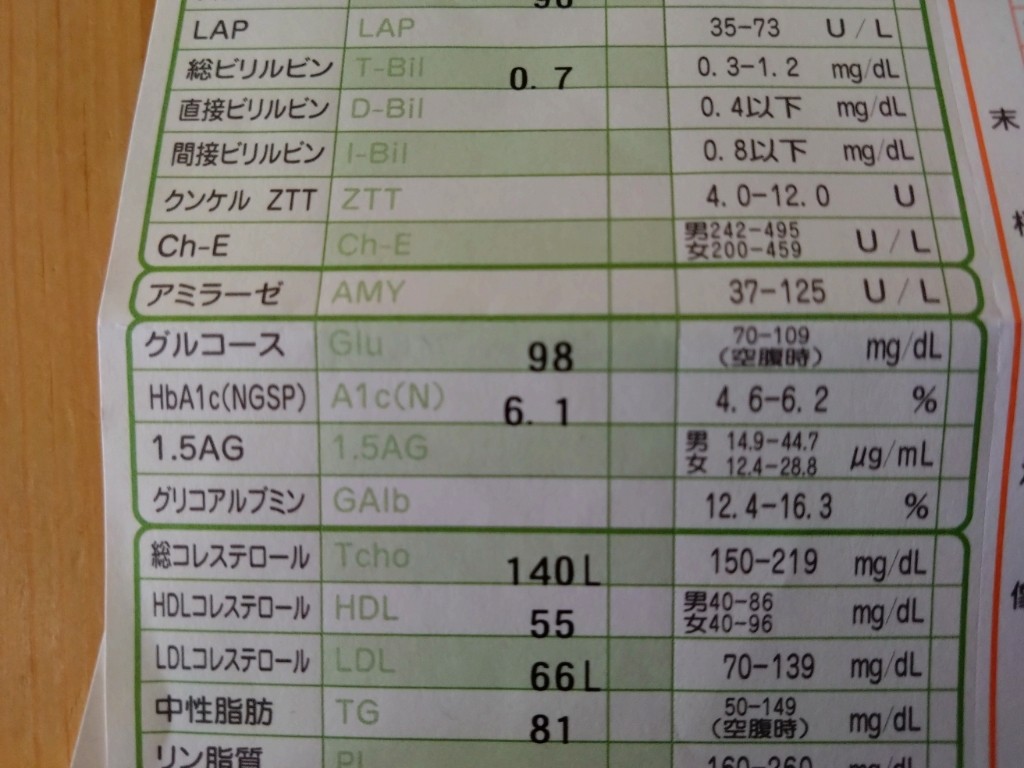 LAP LAP 35-73 U/L
総ビリルビン T-Bil 0.7 0.3-1.2 mg/dL
直接ビリルビン D-Bil 0.4以下 mg/dL
間接ビリルビン I-Bil 0.8以下 mg/dL
クンケル ZTT ZTT 4.0-12.0 U
Ch-E Ch-E 男242-495 女200-459 U/L
アミラーゼ AMY 37-125 U/L
グルコース Glu 98 70-109 (空腹時) mg/dL
HbA1c(NGSP) A1c(N) 6.1 4.6-6.2 %
1.5AG 1.5AG 男 14.9-44.7 女 12.4-28.8 μg/mL
グリコアルブミン GAlb 12.4-16.3 %
総コレステロール Tcho 140L 150-219 mg/dL
HDLコレステロール HDL 55 男40-86 女40-96 mg/dL
LDLコレステロール LDL 66L 70-139 mg/dL
中性脂肪 TG 81 50-149 (空腹時) mg/dL
リン脂質 PL 160-260 mg/dL
末